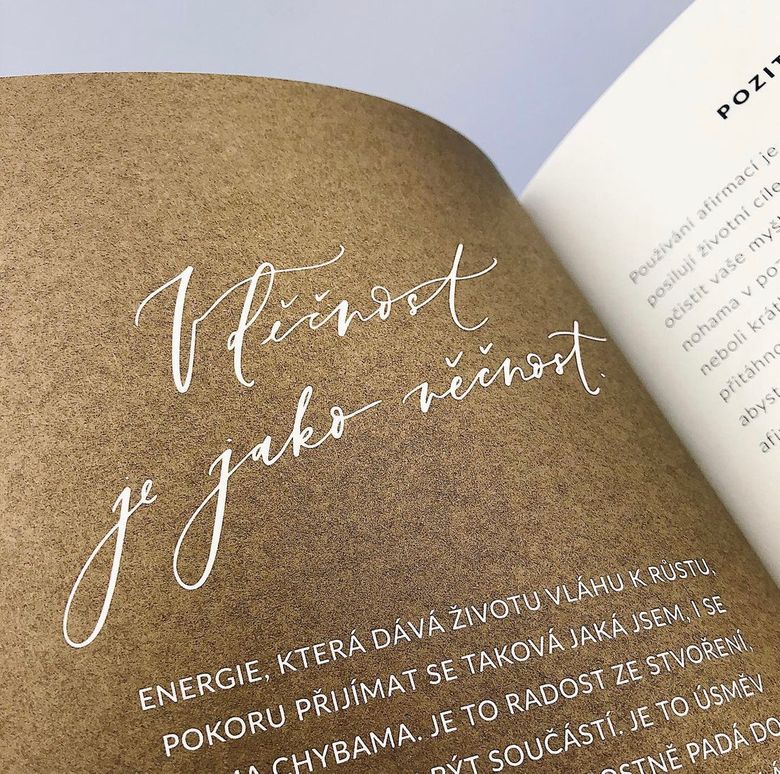 Vděčnost
je jako věčnost.
ENERGIE, KTERÁ DÁVÁ ŽIVOTU VLÁHU K RŮSTU,
POKORU PŘIJÍMAT SE TAKOVÁ JAKÁ JSEM, I SE
CHYBAMA. JE TO RADOST ZE STVOŘENÍ,
BÝT SOUČÁSTÍ. JE TO ÚSMĚV
PADÁ DO
POZIT
Používání afirmací je
posilují životní cíle
očistit vaše myš
nohama v poz
neboli krá
přitáhno
abyst
afir